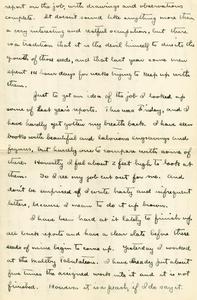 report on the job, with drawings and observations
complete. It doesn't sound like anything more than
a very interesting and restful occupation, but there
is a tradition that it is the devil himself to describe the
growth of those seeds, and that last year some men
spent 14 hours days for weeks trying to keep up with
them.
Just to get an idea of the job I looked up
some of last year's reports. This was Friday, and I
have hardly yet gotten my breath back. I have seen
books with beautiful and laborious engravings and
figures, but hardly one to compare with some of
these. Honestly I feel about 2 feet high to look at
them. So I see my job cut out for me. And
don't be surprised if I write hasty and infrequent
letters, because I mean to do it up brown.
I have been hard at it lately to finish up
all back reports and have a clear slate before these
seeds of mine begin to come up. Yesterday I worked
at the tabulations. I have already put about
five times the assigned work into it and it is not
finished. However it is a peach, if I do say it.